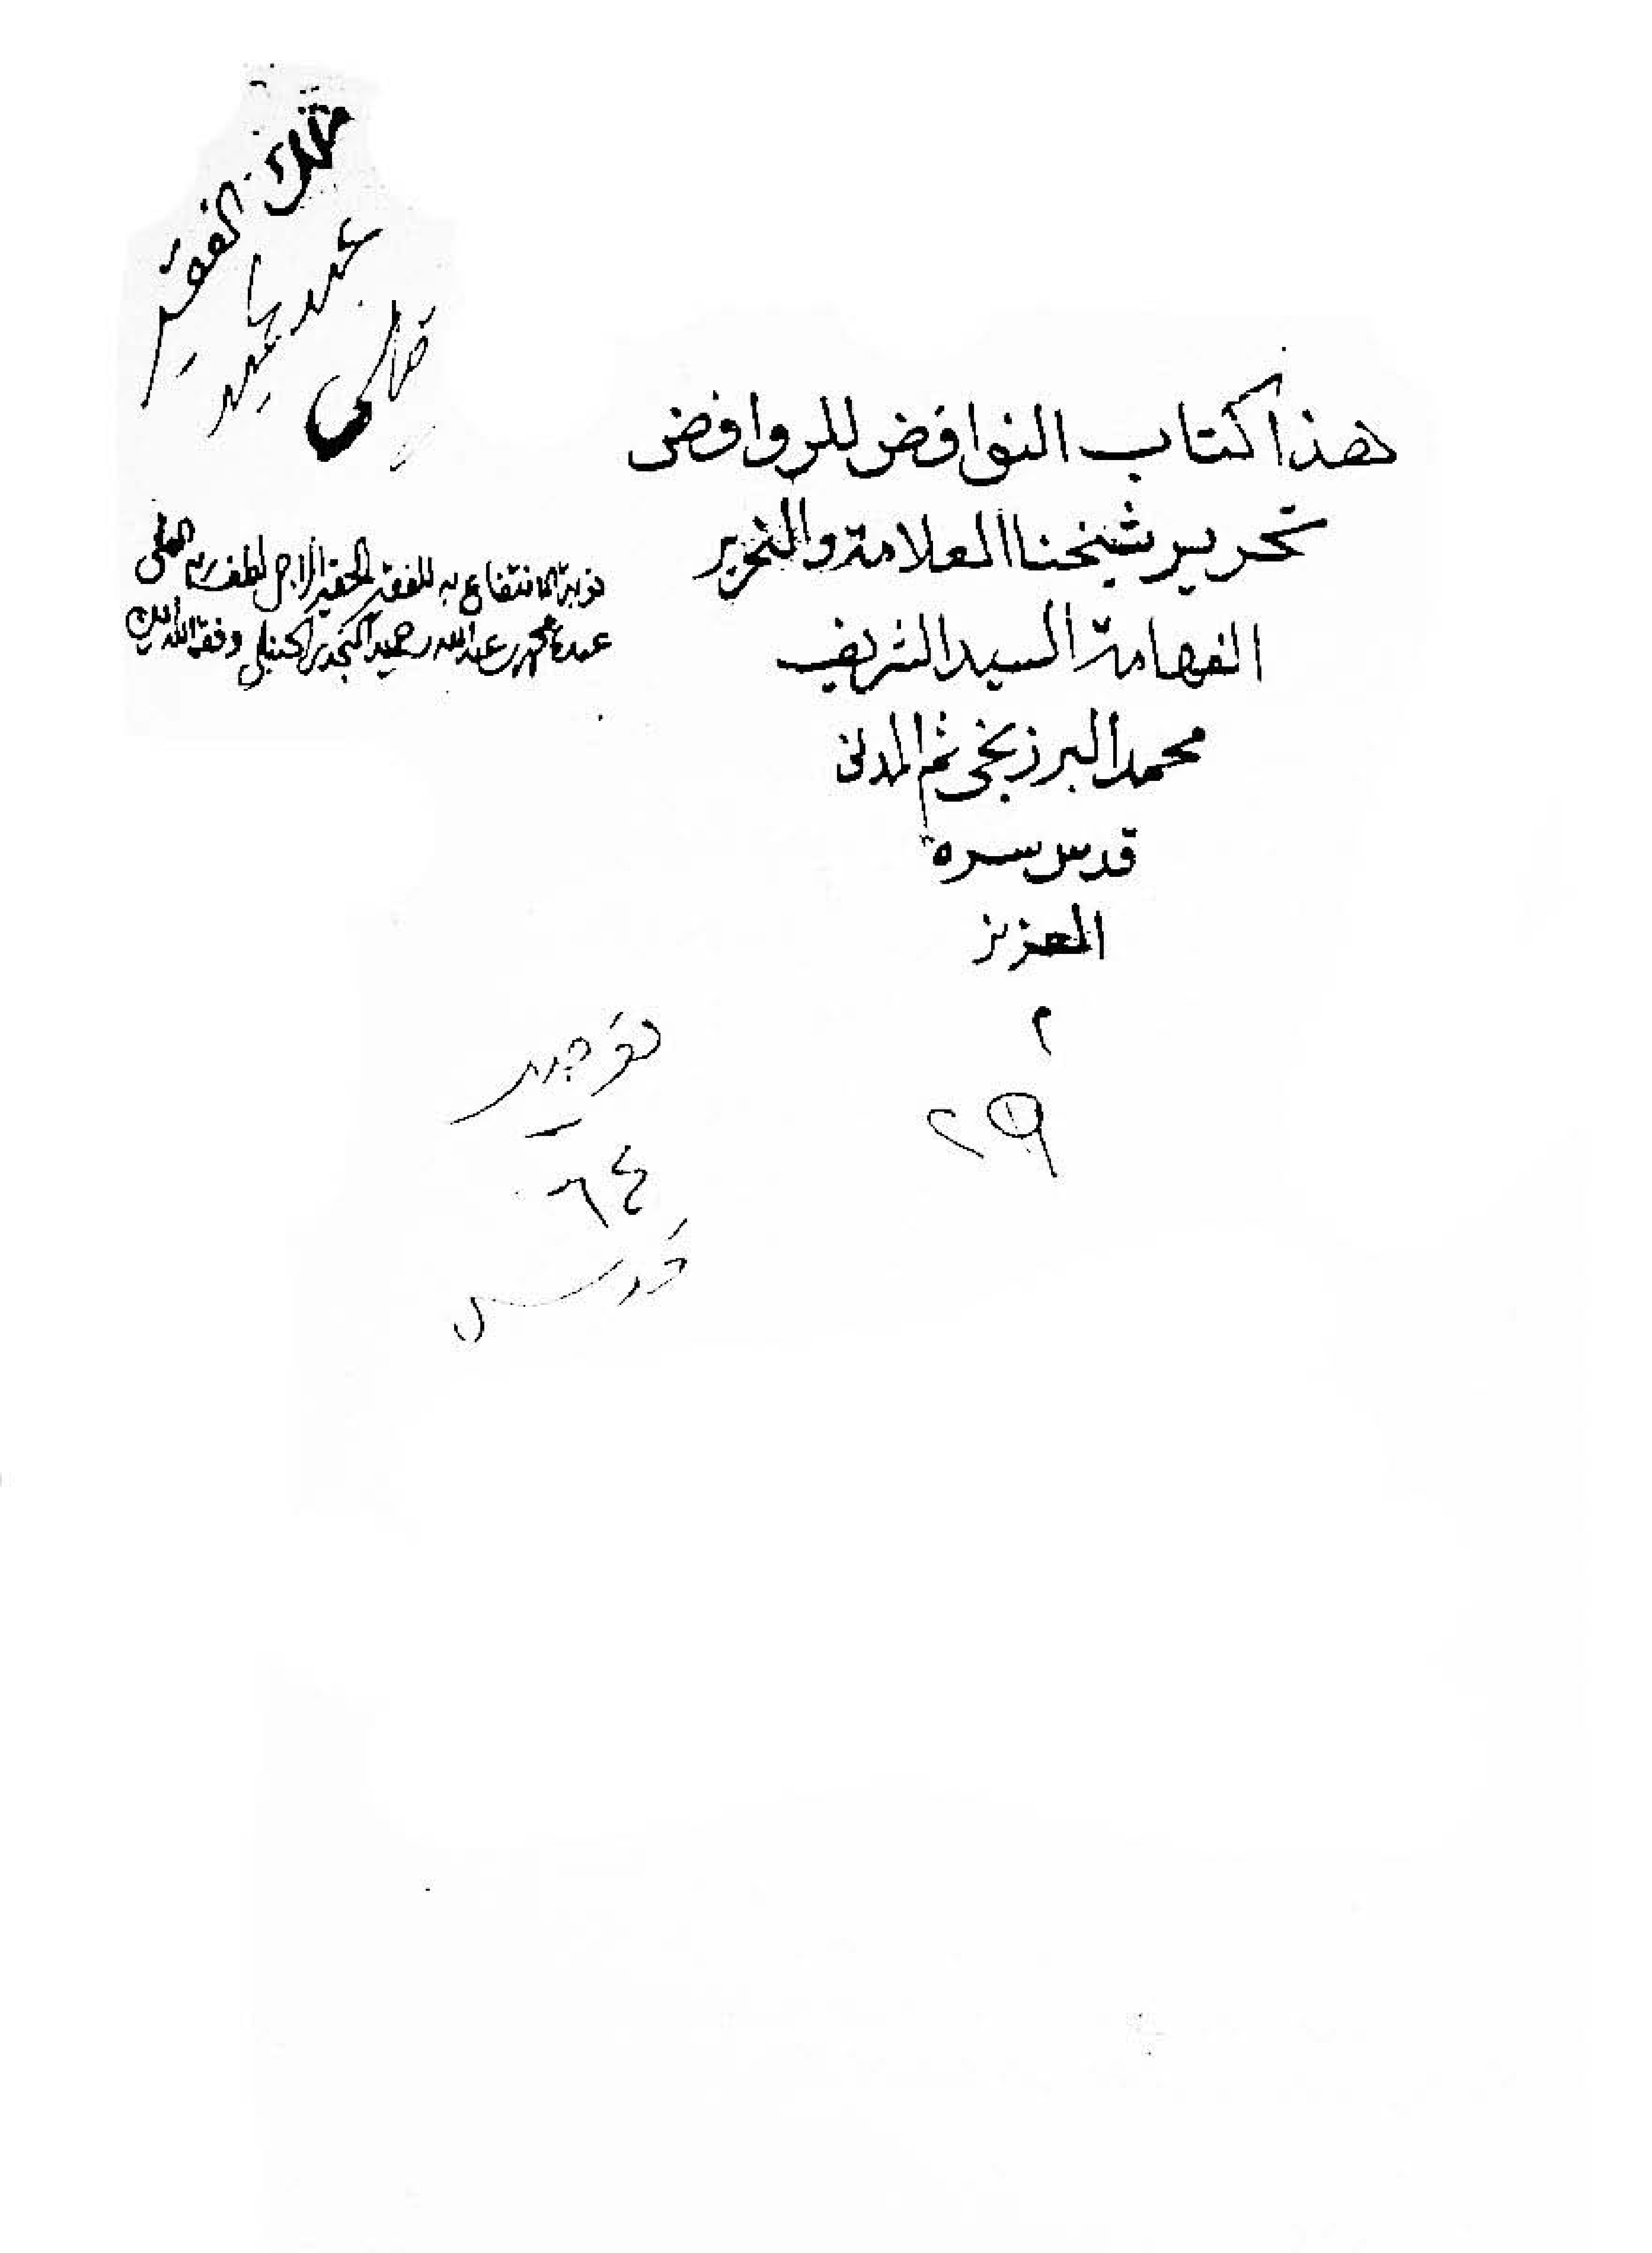 هذا كتاب النوافض للروافض
تحرير شيخنا العلامة والنحرير
الفهامة السيد الشريف
محمد البرزنجي ثم المدني
قدس سره
العزيز
٢
٢٩
ملك الفقير
نوبة الانتفاع به للفقير الحقير الراجي لطف ربه العلي
عبده محمد بن عبدالله بن حميد النجدي الحنبلي وفقه الله
توحيد
٦٤
قدس